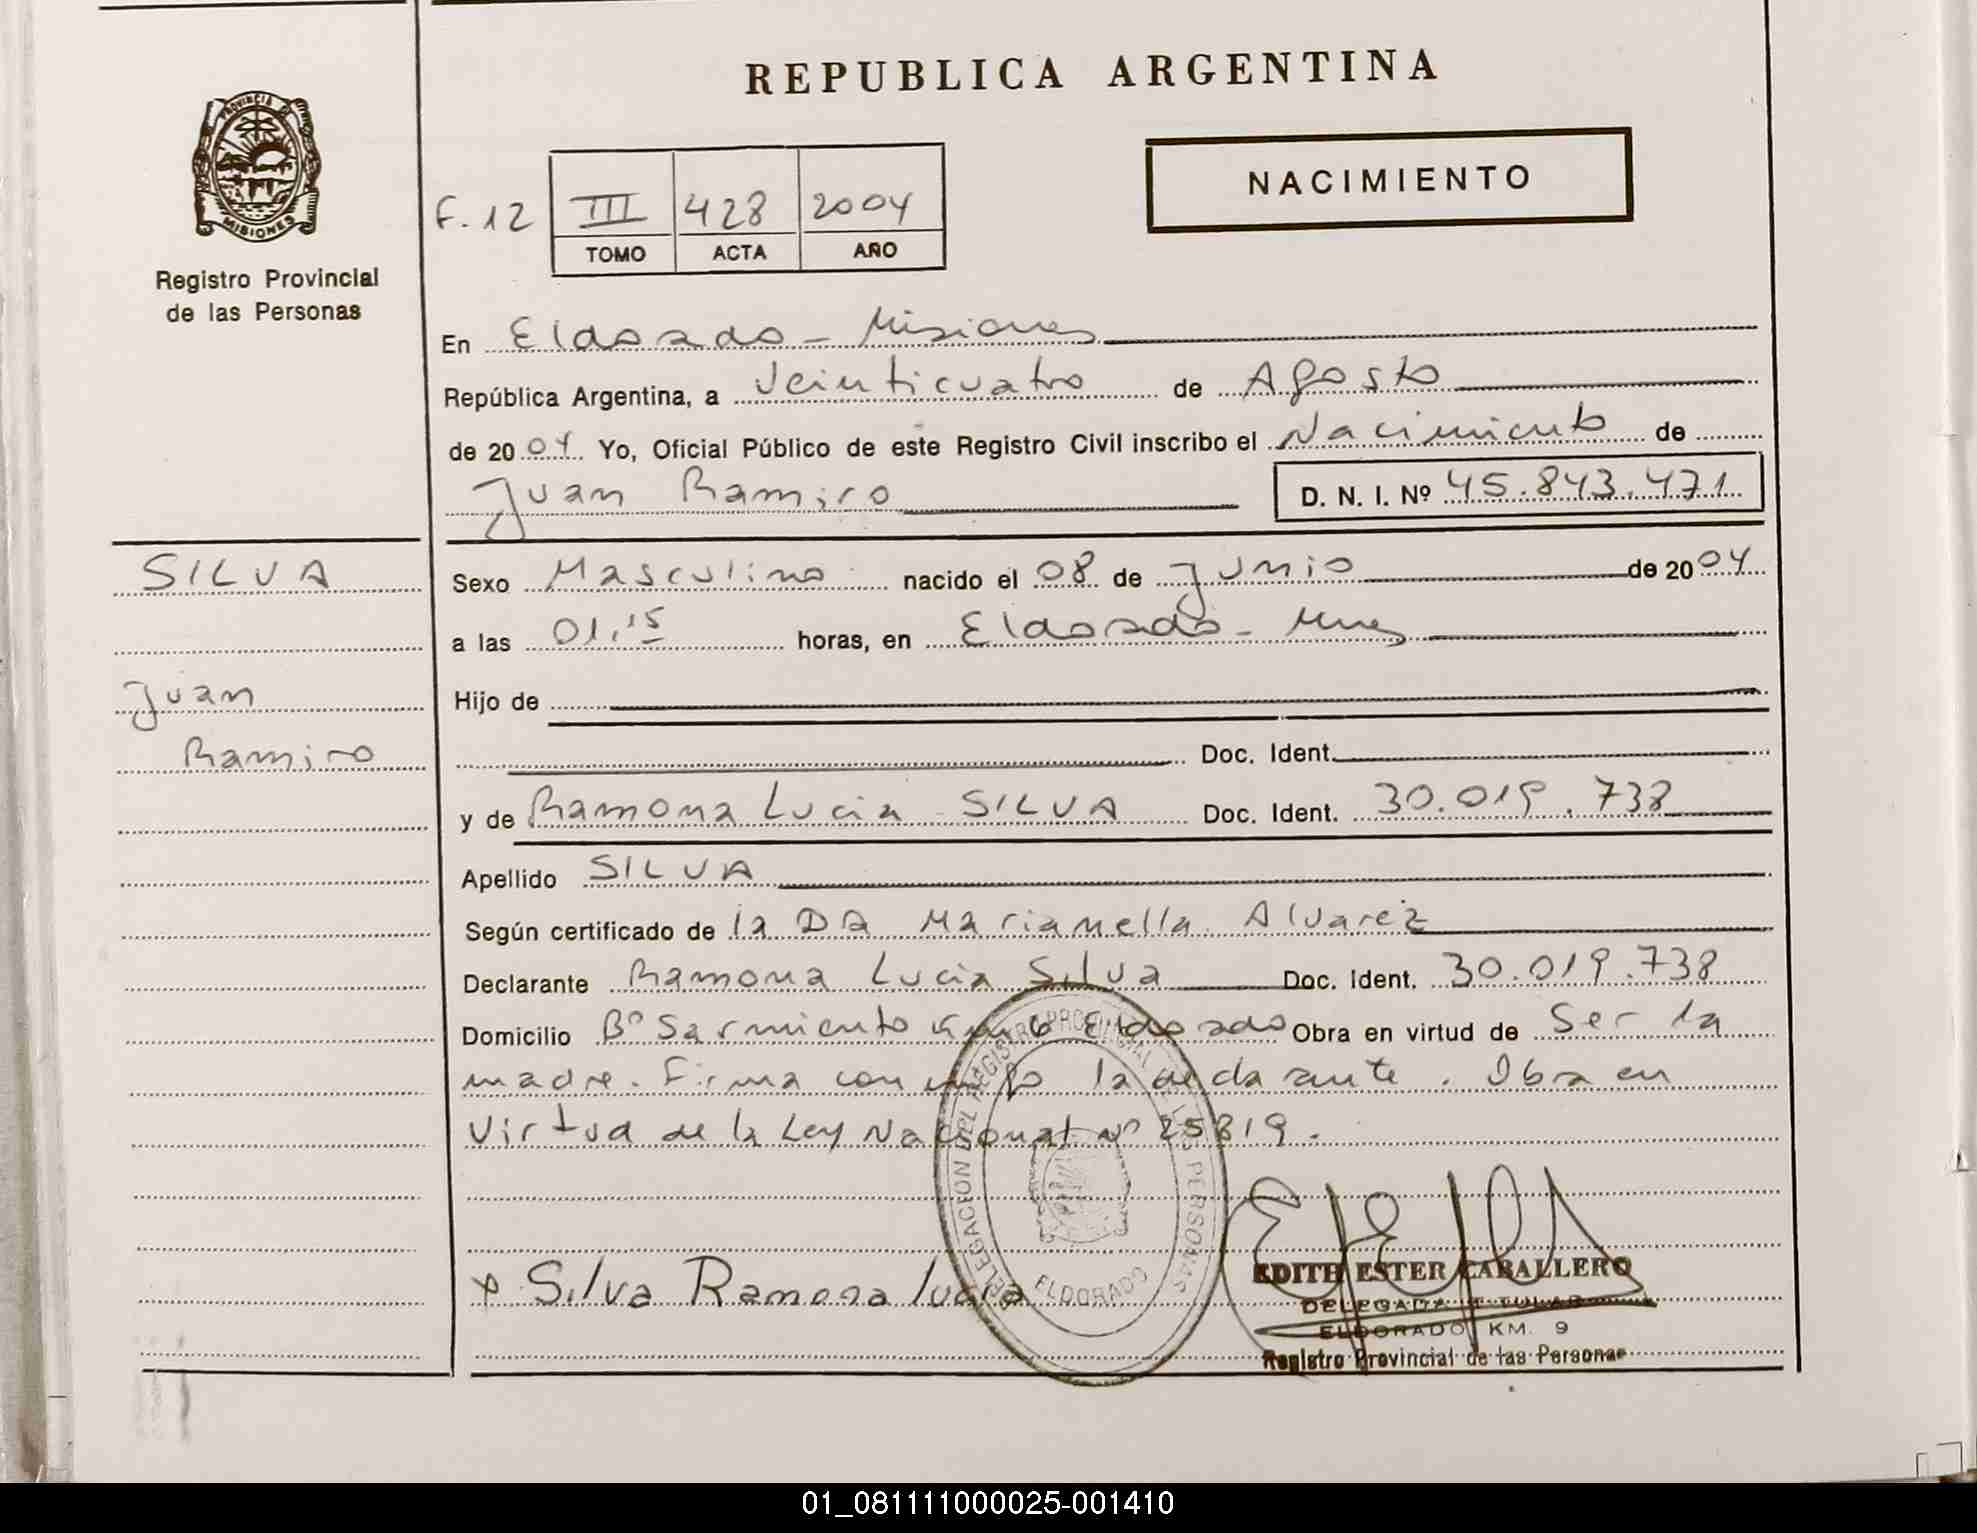 REPUBLICA ARGENTINA
PROVINCIA DE
MISIONES
Registro Provincial
de las Personas
NACIMIENTO
F. 12 III 428 2004
TOMO ACTA AÑO
En Eldorado - Misiones
República Argentina, a Veinticuatro de Agosto
de 2004 Yo, Oficial Público de este Registro Civil inscribo el Nacimiento de
Juan Ramiro D. N. I. Nº 45.843.471
SILVA
Juan
Ramiro
Sexo Masculino nacido el 08 de Junio de 2004
a las 01,15 horas, en Eldorado - Mnes
Hijo de
Doc. Ident.
y de Ramona Lucia SILVA Doc. Ident. 30.019.738
Apellido SILVA
Según certificado de la DRA Marianella Alvarez
Declarante Ramona Lucia Silva Doc. Ident. 30.019.738
Domicilio Bº Sarmiento Km 6 Eldorado Obra en virtud de Ser la
madre. Firma conmigo la declarante. Obra en
Virtud de la Ley Nacional Nº 25819.
DELEGACION DEL REGISTRO PROVINCIAL DE LAS PERSONAS
ELDORADO
x Silva Ramona lucia
EDITH ESTER CABALLERO
DELEGADA TITULAR
ELDORADO KM. 9
Registro Provincial de las Personas
01_081111000025-001410